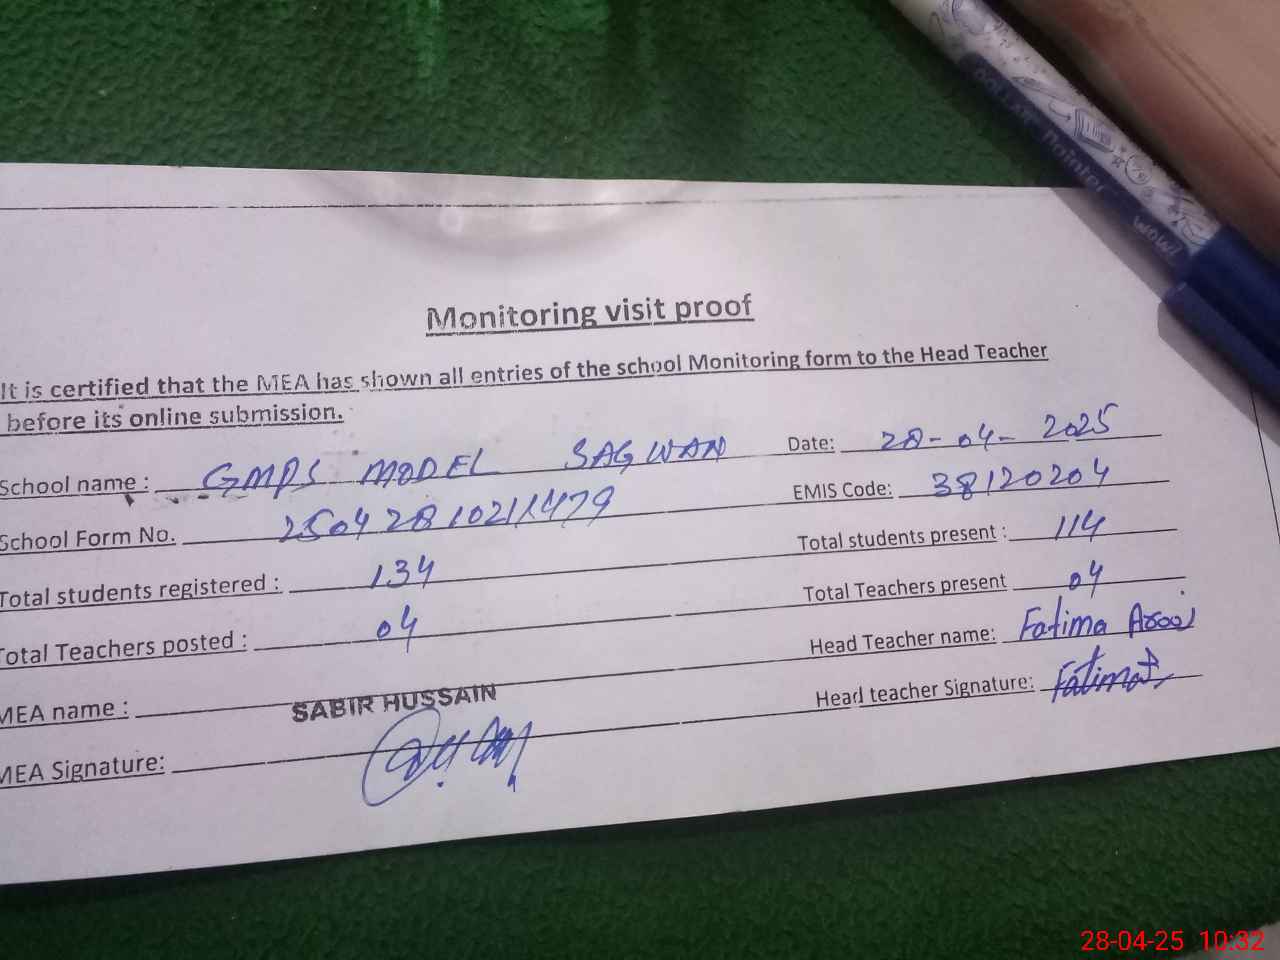 Monitoring visit proof
It is certified that the MEA has shown all entries of the school Monitoring form to the Head Teacher
before its online submission.
School name : GMPS MODEL SAGWAN Date: 28-04-2025
School Form No. EMIS Code: 38120204
Total students registered : 134 Total students present : 114
Total Teachers posted : 04 Total Teachers present 04
MEA name : SABIR HUSSAIN Head Teacher name: Fatima
MEA Signature: Head teacher Signature: Fatima
DOLLAR Pointer
WOW!
28-04-25 10:32